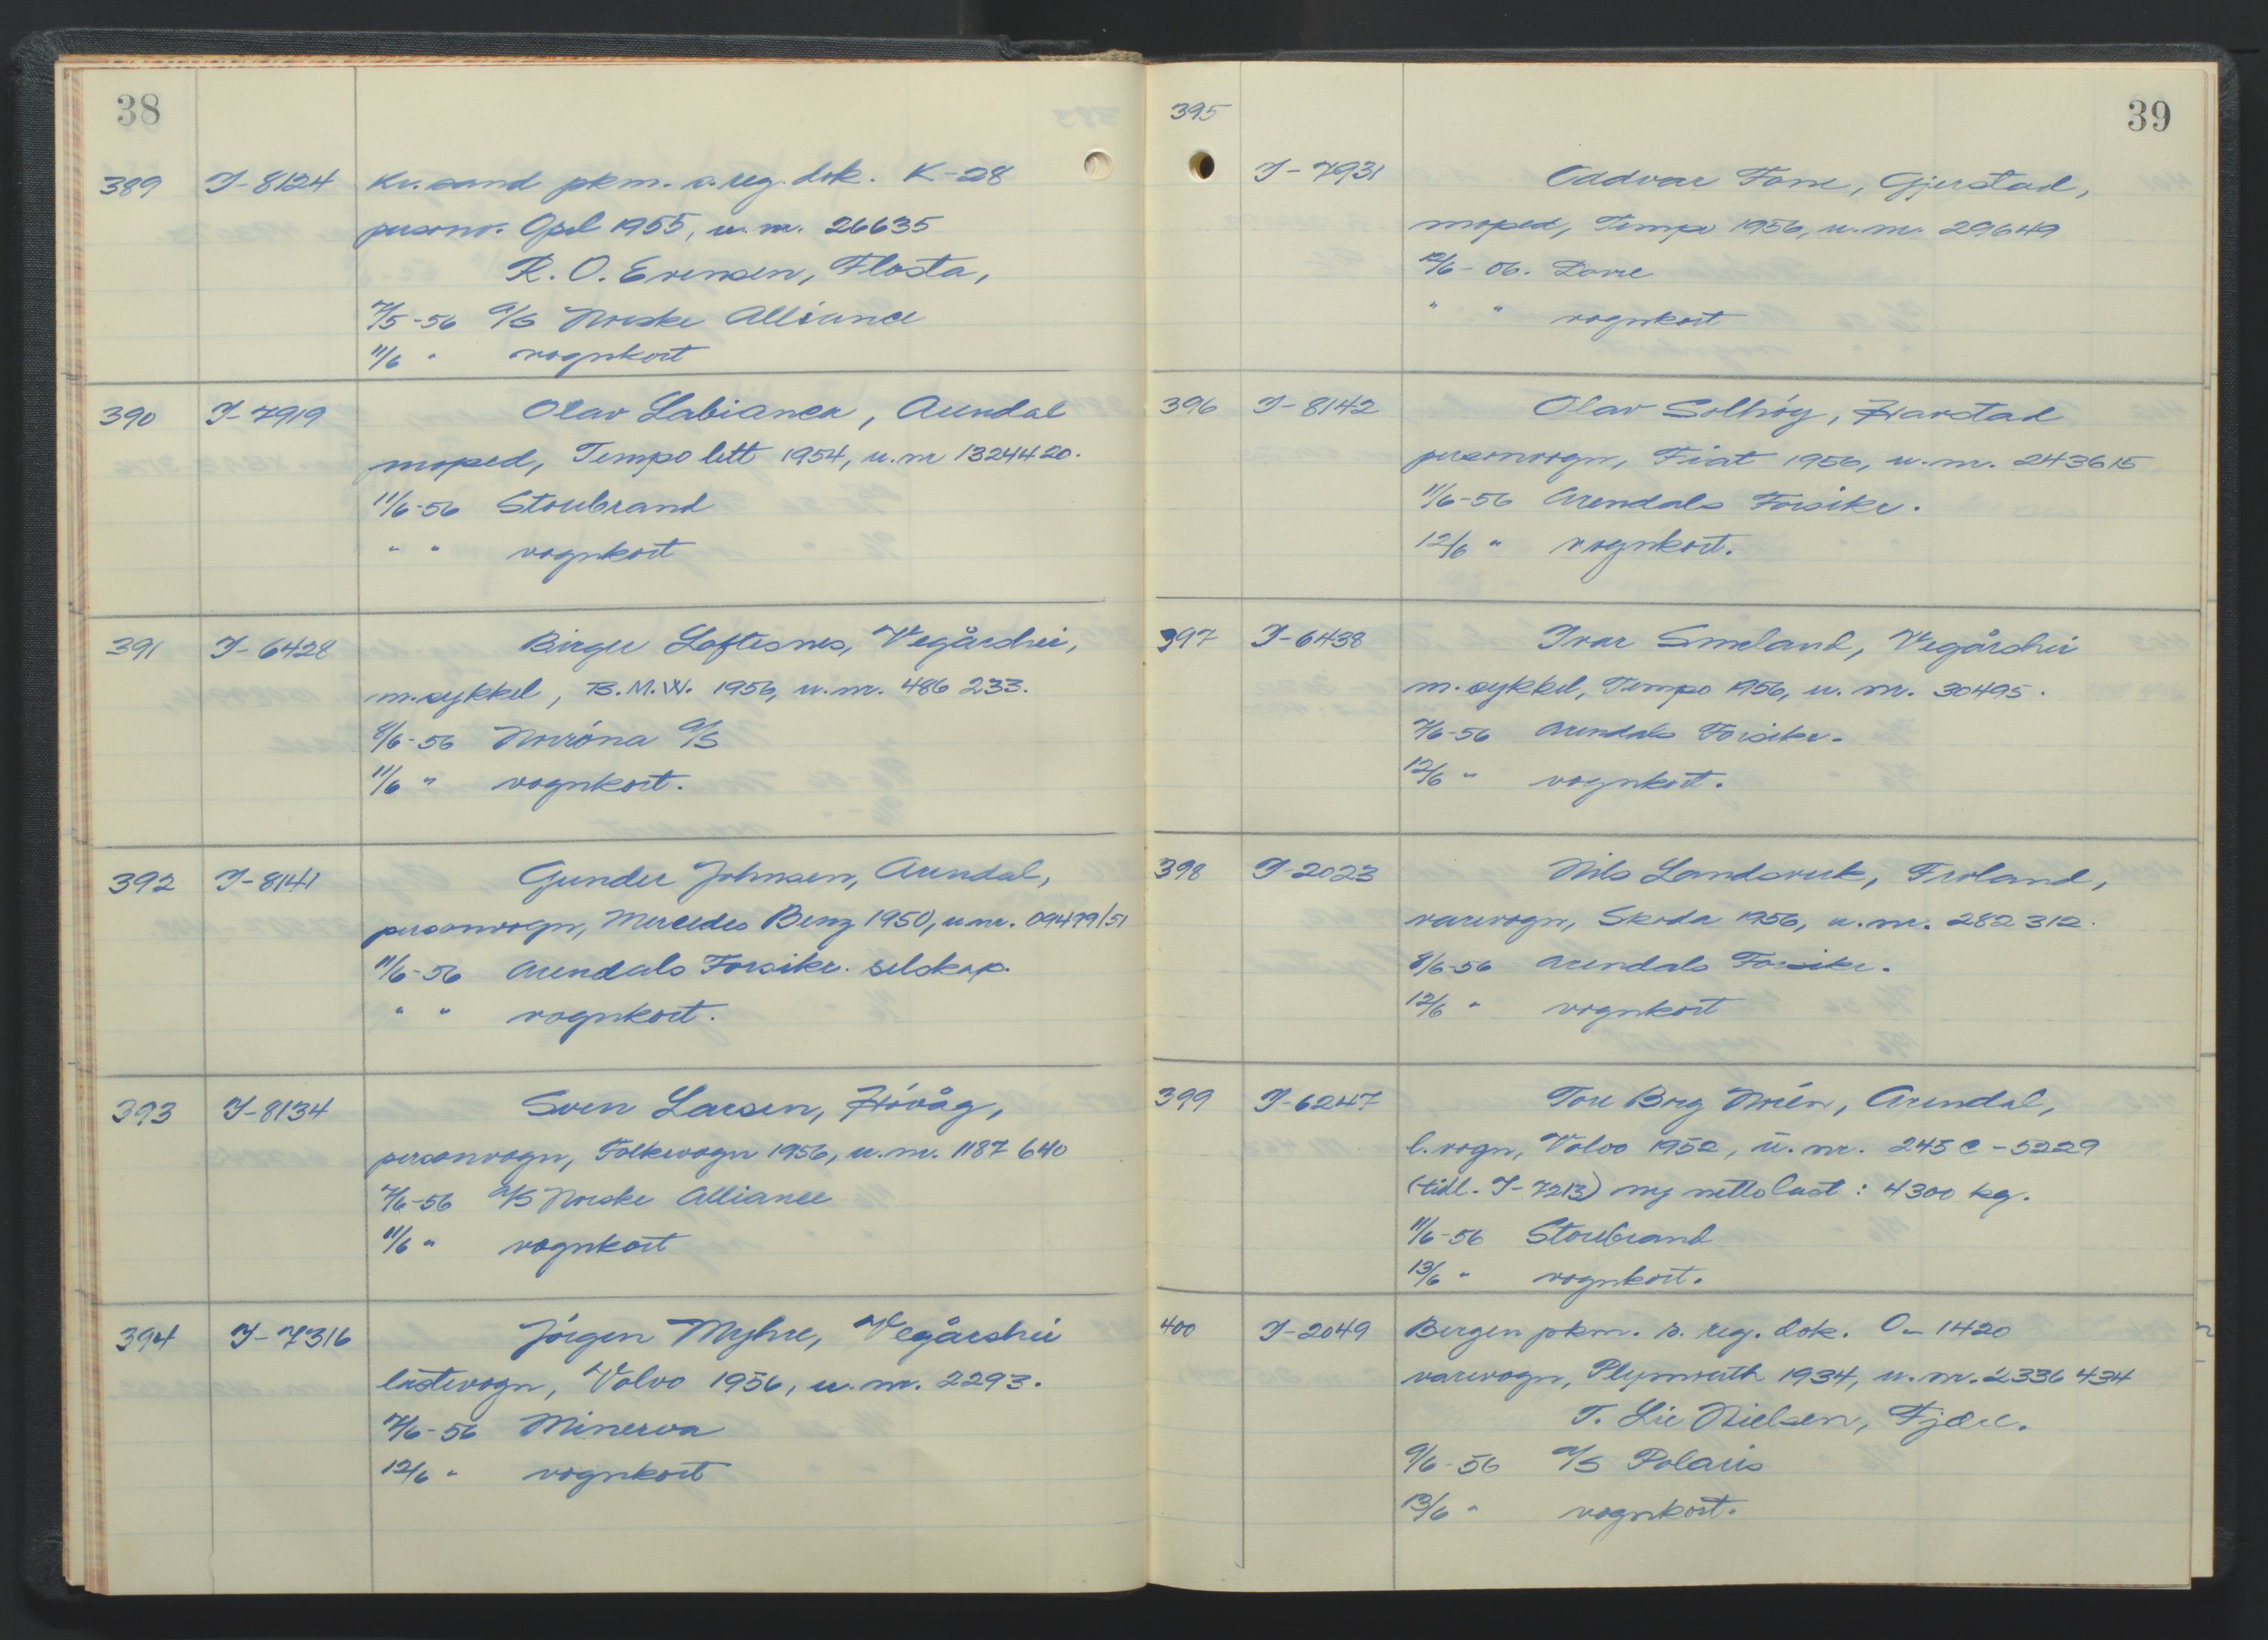 38
389 I-8124 Kr.sand pkm. s. reg. dok. K-28
personv. Opel 1955, u. nr. 26635
R. O. Evensen, Flosta,
7/5-56 A/S Norske Alliance
11/6 " vognkort
390 I-7919 Olav Labianca, Arendal
moped, Tempo lett 1954, u. nr 1324420.
11/6-56 Storebrand
" " vognkort
391 I-6428 Birger Loftesnes, Vegårshei,
m.sykkel, B.M.W. 1956, u. nr. 486 233.
8/6-56 Norröna A/S
11/6 " vognkort.
392 I-8141 Gunder Johnsen, Arendal,
personvogn, Mercedes Benz 1950, u.nr. 09499/51
11/6-56 Arendals Forsikr. selskap.
" " vognkort.
393 I-8134 Sven Larsen, Hövåg,
personvogn, Folkevogn 1956, u. nr. 1187 640
7/6-56 A/S Norske Alliance
11/6 " vognkort
394 I-7316 Jörgen Myhre, Vegårshei
lastevogn, Volvo 1956, u. nr. 2293.
7/6-56 Minerva
12/6 " vognkort
39
395 I-7931 Oddvar Fone, Gjerstad,
moped, Tempo 1956, u. nr. 29649
12/6-56. Dovre
" " vognkort
396 I-8142 Olav Solhöy, Harstad
personvogn, Fiat 1956, u. nr. 243615
11/6-56 Arendals Forsikr.
12/6 " vognkort.
397 I-6438 Ivar Smeland, Vegårshei
m. sykkel, Tempo 1956, u. nr. 30495.
7/6-56 Arendals Forsikr.
12/6 " vognkort.
398 I-2023 Nils Landsverk, Froland,
varevogn, Skoda 1956, u. nr. 282 312.
8/6-56 Arendals Forsikr.
12/6 " vognkort
399 I-6247 Tore Borg Norén, Arendal,
l.vogn, Volvo 1952, u. nr. 245 C - 5229
(tidl. I-7213) ny nettolast: 4300 kg.
11/6-56 Storebrand
13/6 " vognkort.
400 I-2049 Bergen pkm. s. reg. dok. O-1420
varevogn, Plymouth 1934, u. nr. 2336 434
T. Lie Nielsen, Fjære.
9/6-56 A/S Polaris
13/6 " vognkort.